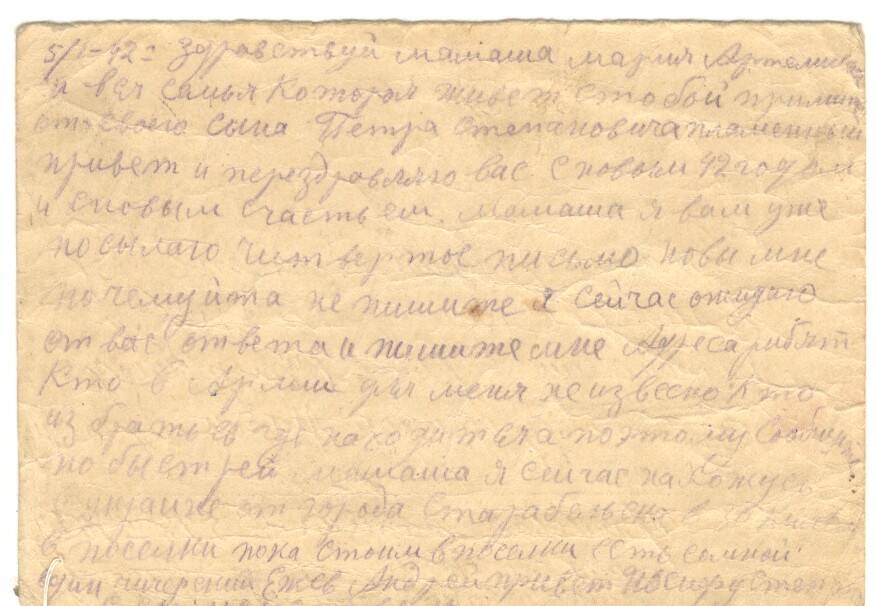 5/I-42г Здравствуй мамаша Мария Артемивна
и вся семья которая живет с тобой примите
от своего сына Петра Степановича пламенный
привет и перездравляю вас с новым 42 годом
и с новым счастьем. Мамаша я вам уже
посылаю читвертое письмо но вы мне
почемуйта не пишите я сейчас ожидаю
от вас ответа и пишите мне Адреса рибят
Кто в Армии для меня не извесно кто
из братьев где находитьса поэтому сообщите
по быстрей мамаша я сейчас нахожусь
от города Старабельска в
в поселки пока стоим в поселки есть сомной
один Ежев Андрей привет